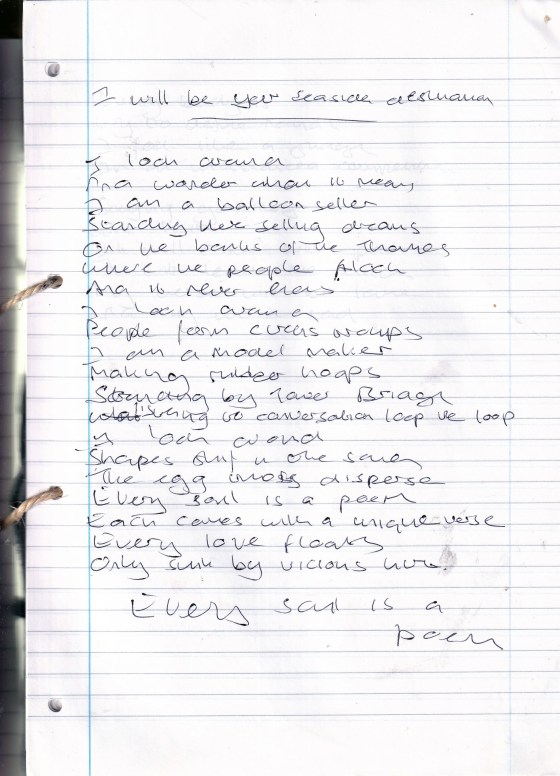 I will be your seaside
I look around
And wonder what it means
I am a balloon seller
Standing here selling dreams
On the banks of the Thames
Where the people flock
And it never ends
I look around
People form circus groups
I am a model maker
Making rubber hoops
Standing by Tower Bridge
listening to conversation loop the loop
I look around
Shapes shift in the sand
The egg disperse
Every soul is a poem
Each comes with a unique verse
Every love floats
Only sunk by vicious
Every soul is a
poem